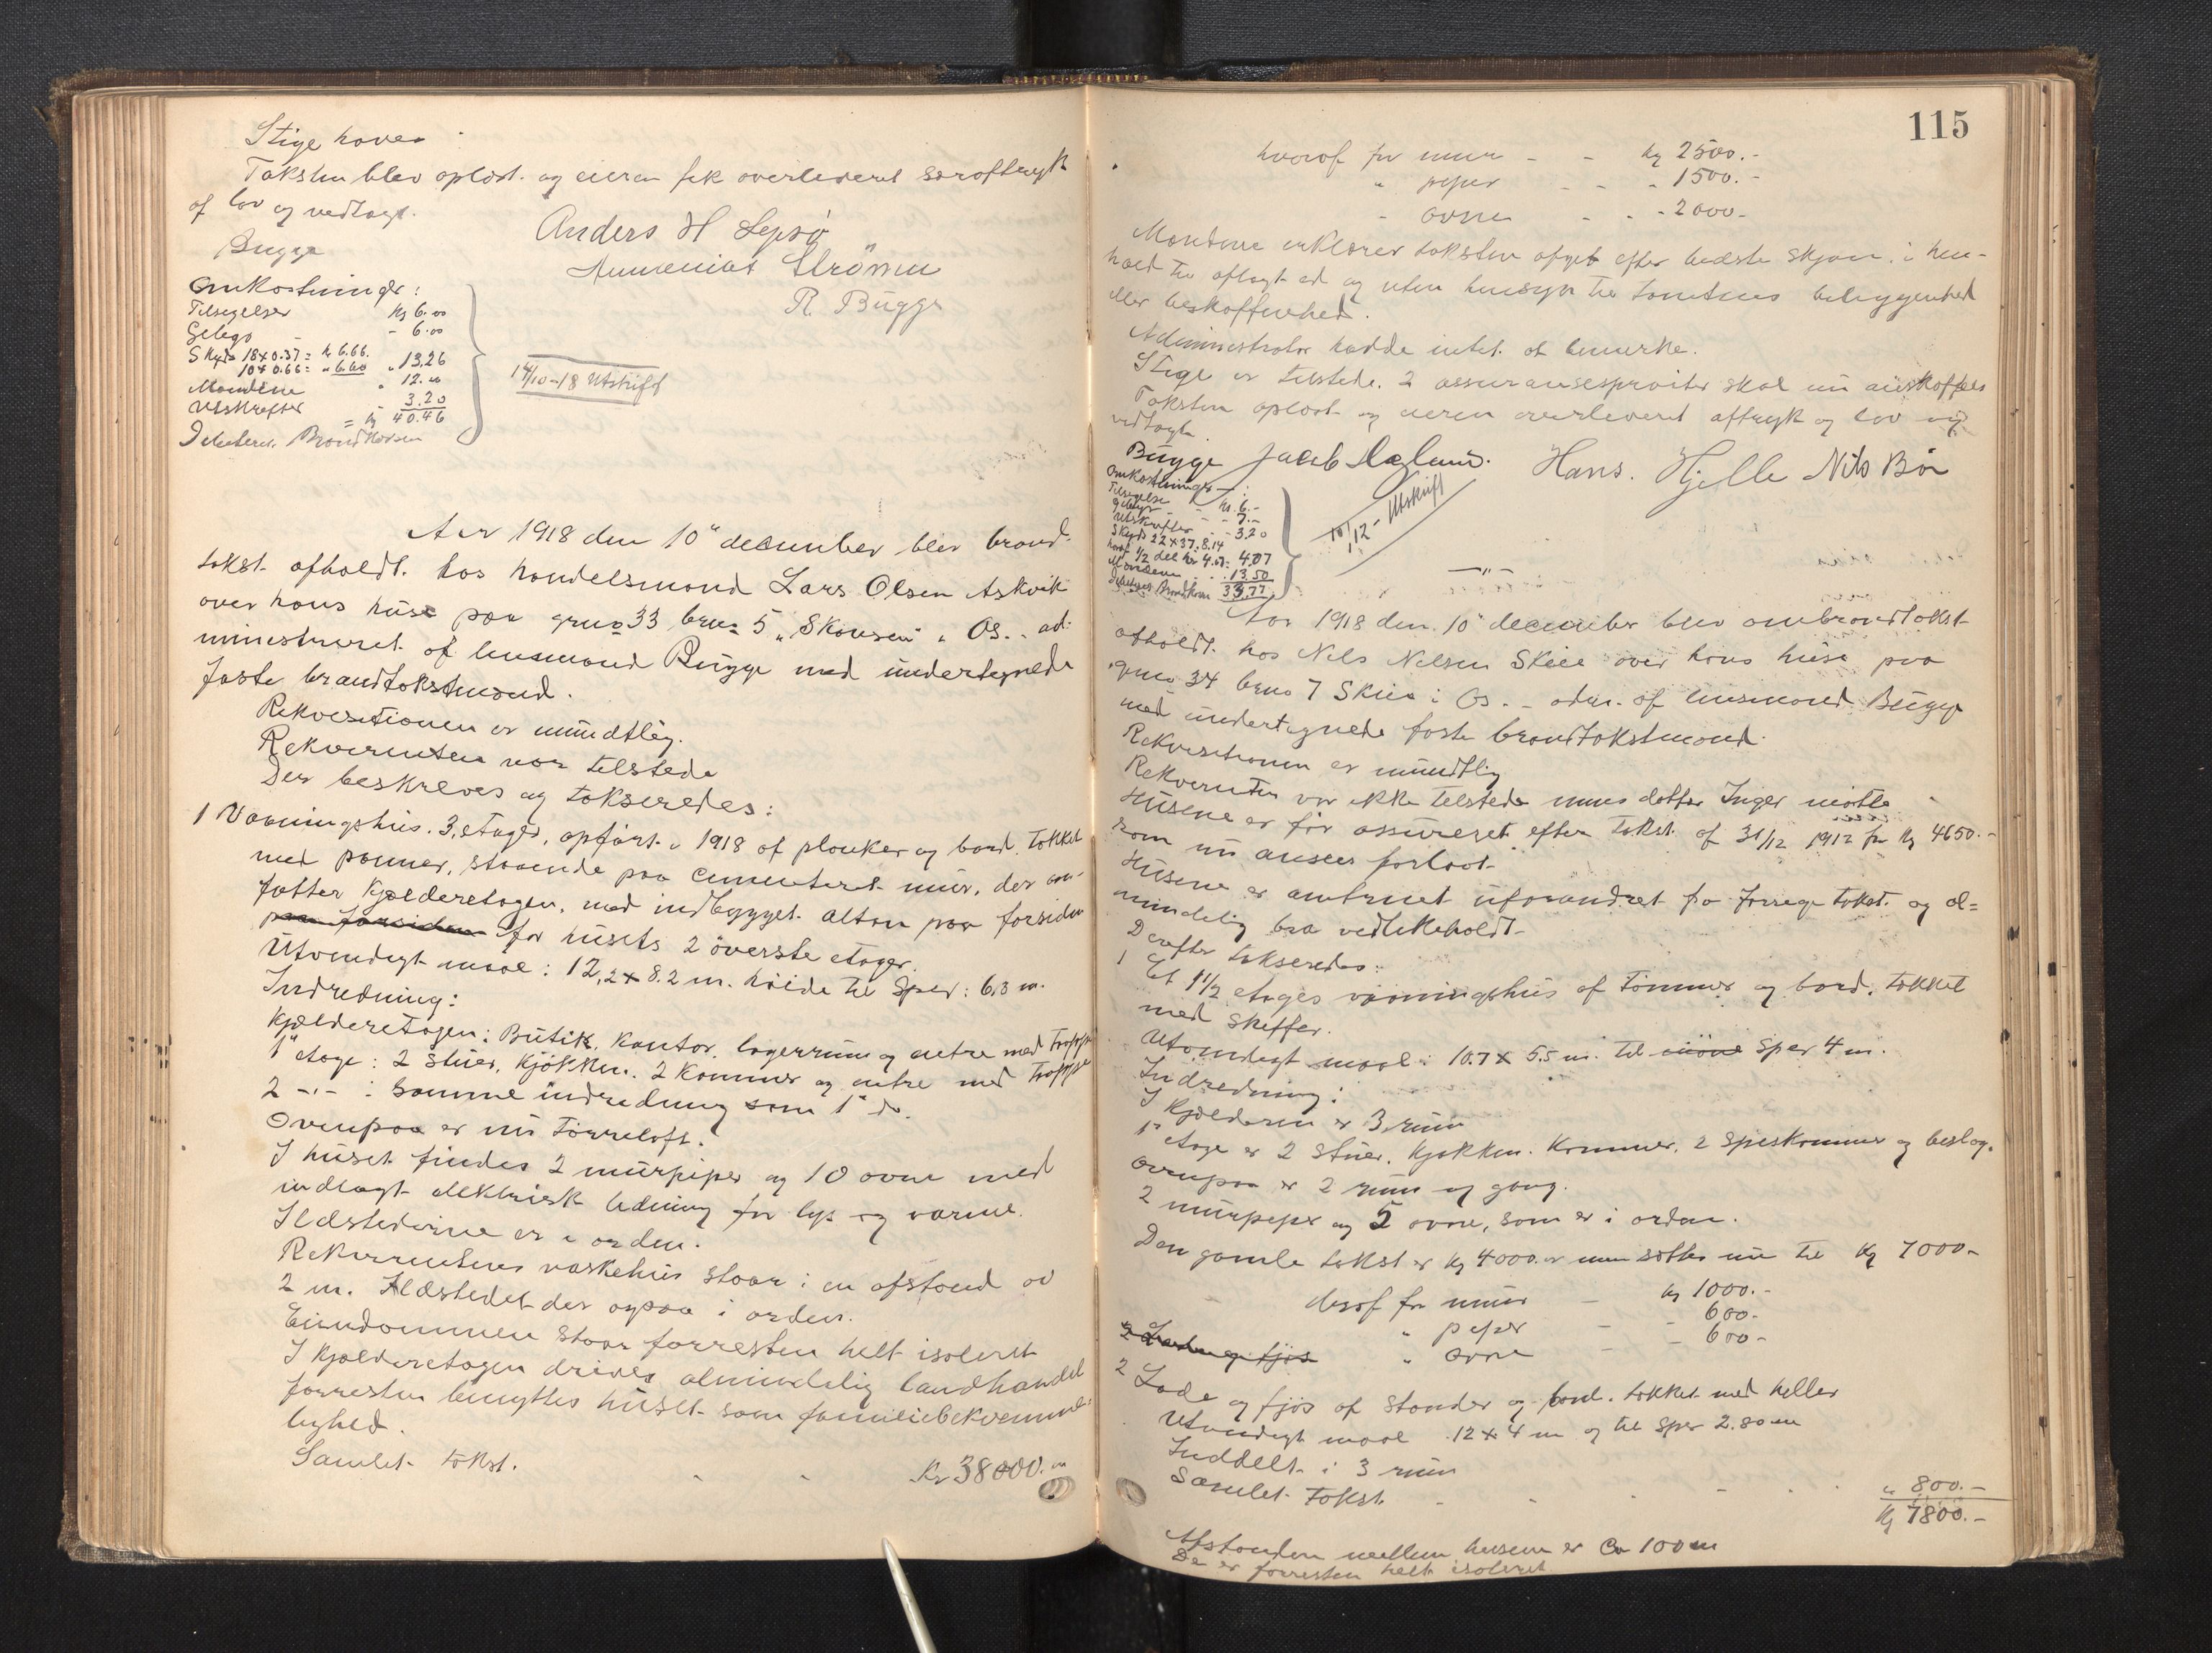 Stige haves
Taksten blev oplæst og eieren fik overleveret særaftryk
af lov og vedtægt.
Bugge
Anders H Lepsø
Strönen
R. Bugge
Omkostninger:
Tilsigelser Kr 6.00
Gebyr - 6.00
Skyds 18x0.37 = kr 6.66.
10x0.66 = " 6.60 " 13,26
Mændene " 12.00
Utskrifter - 3.20
= kr 40.46
Debiteres Brandkassen
14/10-18 Utskrift
Aar 1918 den 10" december blev brand-
takst afholdt hos handelsmand Lars Olsen Askvik
over hans huse paa grno 33 brno 5 "Skansen" i Os. ad-
ministreret af lensmand Bugge med undertegnede
faste brandtakstmænd.
Rekvisitionen er mundtlig.
Rekvirenten var tilstede
Der beskreves og takseredes:
1 Vaaningshus. 3. etager, opført i 1918 af planker og bord. tækket
med panner, staaende paa cementeret mur, der om-
fatter kjælderetagen, med indbygget altan paa forsiden
paa forsiden for husets 2 överste etager.
Utvendigt maal: 12,2 x 8.2 m. höide til Sper: 6,3 m.
Indredning:
Kjælderetagen: Butik, Kontor, lagerrum og entre med trappe
1" etage: 2 stuer, kjökken, 2 kammer og entre med trappe
2 -"- : samme indredning som 1" do.
Ovenpaa er nu törreloft.
I huset findes 2 murpiper og 10 ovne med
indlagt elektrisk ledning for lys og varme.
Ildstederne er i orden.
Rekvirentens vaskehus staar i en afstand av
2 m. Ildstedet der ogsaa i orden.
Eiendommen staar forresten helt isoleret
I kjælderetagen drives almindelig landhandel
forresten benyttes huset som familiebekvemme-
lighed.
Samlet takst. - - Kr 38000.00
115
hvoraf for mur - - kr 2500.-
" piper - - - 1500.-
- ovne - - - 2000-
Mændene erklærer taksten afgit efter bedste skjøn i hen-
hold til aflagt ed og uten hensyn til tomtens beliggenhed
eller beskaffenhed.
Administrator hadde intet at bemerke.
Stige er tilstede. 2 assuransesprøiter skal nu anskaffes
Taksten oplæst og eieren overleveret aftryk og lov og
vedtægt.
Bugge Jacob Hans. Hjelle Nils Bö
Omkostninger:
Tilsigelse - - kr. 6.-
Gebyr - - - 7.-
Utskrifter - - 3.20
Skyds 22x37. 8.14
heraf 1/2 del her 4.07 : 4.07
Mændene . . 13.50
Debiteres Brandkassen 33.77
10/12- Utskrift
-"-
Aar 1918 den 10" december blev ombrandtakst
afholdt hos Nils Nilsen Skeie over hans huse paa
grno 34 brno 7 Skeie i Os. - adm. af lensmand Bugge
med undertegnede faste brandtakstmænd.
Rekvisitionen er mundtlig
Rekvirenten var ikke tilstede mens datter Inger mötte
Husene er för assureret efter takst af 31/12 1912 for kr 4650.-
som nu ansees forlavt.
Husene er omtrent uforandret fra forrige takst og al=
mindelig bra vedlikeholdt.
Derefter takseredes:
1 Et 1 1/2 etages vaaningshus af tömmer og bord, tækket
med skiffer.
Utvendigt maal: 10.7 x 5.5 m. til möne Sper 4 m.
Indredning:
I kjælderen er 3 rum
1" etage er 2 stuer, kjökken, kammer, 2 spiskammer og beslag.
ovenpaa er 2 rum og gang.
2 murpiper og 5 ovne, som er i orden.
Den gamle takst er kr 4000.- men sættes nu til Kr 7000-
deraf for mur - kr 1000.-
" piper - - 600-
" ovne - - 600-
2 Lade og fjös
2 Lade og fjös af stender og bord. tækket med heller
Utvendigt maal 12 x 4 m og til Sper 2.80 m
Inddelt i 3 rum
Samlet Takst. - - - - " 800.-
Kr 7800.-
Afstanden mellem husene er Ca 100 m
De er forresten helt isoleret.